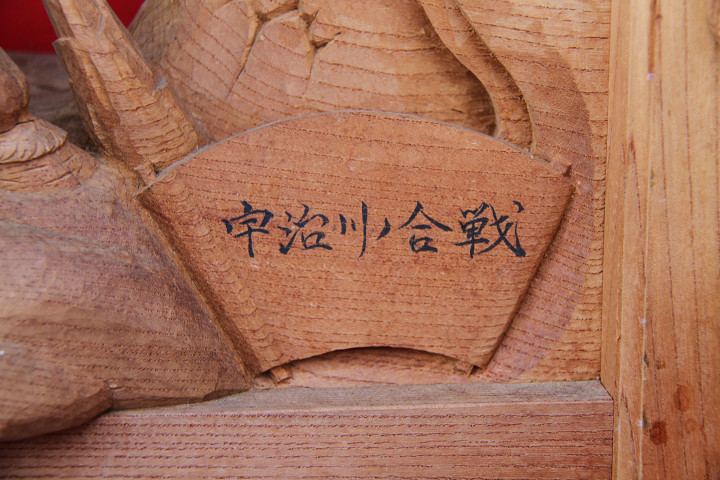 宇治川ノ合戦